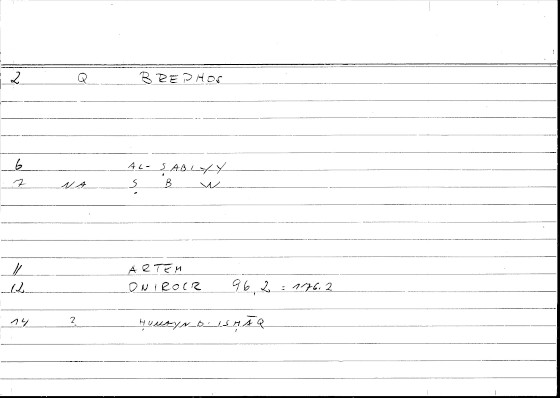 2 Q BREPHOS
6 AL-ṢABIYY
7 NA Ṣ B W
11 ARTEM
12 ONIROCR 96,2 = 176.2
14 2 ḤUNAYN B. ISḤĀQ